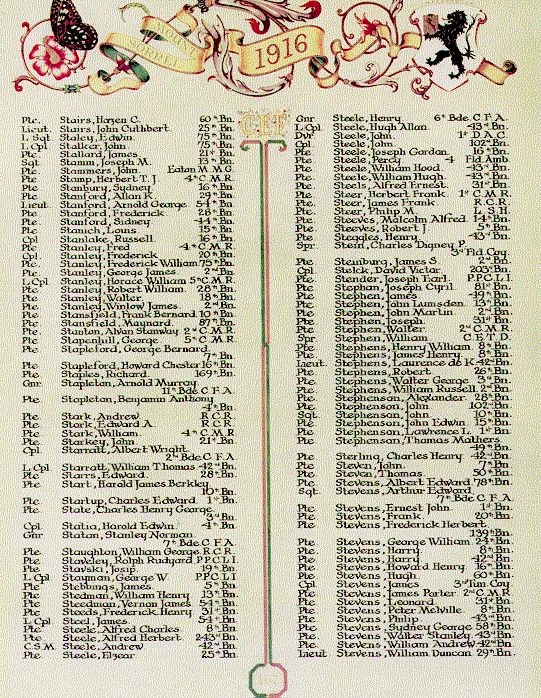 MOUNT
SORREL
1916
CEF
Pte. Stairs, Hazen C. 60th Bn.
Lieut. Stairs, John Cuthbert. 25th Bn.
L Sgt Staley, Edwin. 75th Bn.
L Cpl Stalker, John 75th Bn.
Pte. Stallard, James 21st Bn.
Sgt Stamm, Joseph M. 13th Bn.
Pte. Stammers, John Eaton M.M.G.
Pte Stamp, Herbert T. J. 4th C.M.R.
Pte Stanbury, Sydney 16th Bn.
Pte Stanford, Allan K. 29th Bn.
Lieut Stanford, Arnold George 54th Bn.
Pte Stanford, Frederick 28th Bn.
Pte. Stanford, Sidney 44th Bn.
Pte Stanich, Louis 15th Bn.
Cpl Stanlake, Russell 16th Bn.
Pte Stanley, Fred 4th C.M.R.
Cpl Stanley, Frederick 20th Bn.
Pte. Stanley, Frederick William 75th Bn.
Pte. Stanley, George James 2nd Bn.
L Cpl Stanley, Horace William 5th C.M.R.
Pte. Stanley, Robert William 28th Bn.
Pte Stanley, Walter 18th Bn.
Pte Stanley, Winlow James 2nd Bn.
Pte Stansfield, Frank Bernard 10th Bn.
Pte Stansfield, Maynard. 87th Bn.
Pte. Stanton, Alvan Stanway 2nd C.M.R.
Pte Stapenhill, George 5th C.M.R.
Pte Stapleford, George Bernard
7th Bn.
Pte Stapleford, Howard Chester 16th Bn.
Pte Staples, Richard 169th Bn.
Gnr Stapleton, Arnold Murray
11th Bde. C.F.A.
Pte. Stapleton, Benjamin Anthony
4th Bn.
Pte Stark, Andrew R.C.R.
Pte Stark, Edward A. R.C.R.
Pte Stark, William 4th C.M.R.
Pte Starkey, John 21st Bn.
Cpl Starratt, Albert Wright
2nd Bde. C.F.A.
L Cpl Starratt, William Thomas 42nd Bn.
Pte Starrs, Edward 28th Bn.
Pte Start, Herald James Berkley
10th Bn.
Pte Startup, Charles Edward 1st Bn.
Pte State, Charles Henry George
3rd Bn.
Cpl Statia, Harold Edwin 4th Bn.
Gnr Staton, Stanley Norman
7th Bde. C.F.A.
Pte Staughton, William George R.C.R.
Pte Staveley, Rolph Rudyard P.P.C.L.I
Pte Stavski, Josip 19th Bn.
L Cpl Stayman, George W P.P.C.L.I
Pte Stebbings, James 5th Bn.
Pte Stedman, William Henry 13th Bn.
Pte Steedman, Vernon James 54th Bn.
Pte Steeds, Frederick Henry 31st Bn.
L Cpl Steel, James 54th Bn.
Pte Steele, Alfred Charles 8th Bn.
Pte Steele, Alfred Herbert 243rd Bn.
C.S.M. Steele, Andrew 42nd Bn.
Pte Steele, Elzear 25th Bn.
Gnr Steele, Henry 6th Bde. C.F.A.
L Cpl Steele, Hugh Allan 43rd Bn.
Dvr Steele, John 1st D.A.C.
Cpl Steele, John 102nd Bn.
Pte Steele, Joseph Gordon 16th Bn.
Pte Steele, Percy 4 Fld. Amb.
Pte Steele, William Hood 43rd Bn.
Pte Steele, William Hugh 43rd Bn.
Pte Steels, Alfred Ernest 31st Bn.
Pte Steer, Herbert Frank 1st C.M.R.
Pte Steer, James Frank R.C.R.
Pte Steer, Philip M. L.S.H.
Pte Steeves, Malcolm Alfred 14th Bn.
Pte Steeves, Robert J. 5th Bn.
Pte Steggles, Henry 43rd Bn.
Spr Stein, Charles Digney P.
3rd Fld. Coy.
Pte Steinburg, James S. 2nd Bn.
Cpl Stelck, David Victor 203rd Bn.
Pte Stender, Joseph Earl P.P.C.L.I
Pte Stephan, Joseph Cyril 81st Bn.
Pte Stephen, James 49th Bn.
Pte Stephen, John Lumsden 13th Bn.
Pte Stephen, John Martin 2nd Bn.
Pte Stephen, Joseph 31st Bn.
Pte Stephen, Walter 2nd C.M.R.
Spr Stephen, William C.E.T.D.
Pte Stephens, Henry William 8th Bn.
Pte Stephens, James Henry 8th Bn.
Lieut. Stephens, Laurence de K. 42nd Bn.
Pte Stephens, Robert 26th Bn.
Pte Stephens, Walter George 3rd Bn.
Pte Stephens, William Russell 2nd Bn.
Pte Stephenson, Alexander 28th Bn.
Pte Stephenson, John 102nd Bn.
Sgt Stephenson, John 10th Bn.
Pte Stephenson, John Edwin 15th Bn.
Pte Stephenson, Lawrence L. 1st Bn.
Pte Stephenson, Thomas Mathers
49th Bn.
Pte Sterling, Charles Henry 42nd Bn.
Pte Steven, John 7th Bn.
Pte Steven, Thomas 50th Bn.
Pte Stevens, Albert Edward 78th Bn.
Sgt. Stevens, Arthur Edward
7th Bde. C.F.A.
Pte Stevens, Ernest John 1st Bn.
Pte Stevens, Frank 20th Bn.
Pte Stevens, Frederick Herbert
139th Bn.
Pte Stevens, George William 24th Bn.
Pte Stevens, Harry 8th Bn.
Pte Stevens, Harry 42nd Bn.
Pte Stevens, Howard Henry 16th Bn.
Pte Stevens, Hugh 60th Bn.
Cpl Stevens, James 3rd Tun. Coy
Pte Stevens, James Porter 2nd C.M.R.
Pte Stevens, Leonard 31st Bn.
Pte Stevens, Peter Melville 8th Bn.
Pte Stevens, Philip 43rd Bn.
Pte Stevens, Sydney George 58th Bn.
Pte Stevens, Walter Stanley 43rd Bn.
Pte Stevens, William Andrew 42nd Bn.
Lieut Stevens, William Duncan 29th Bn.